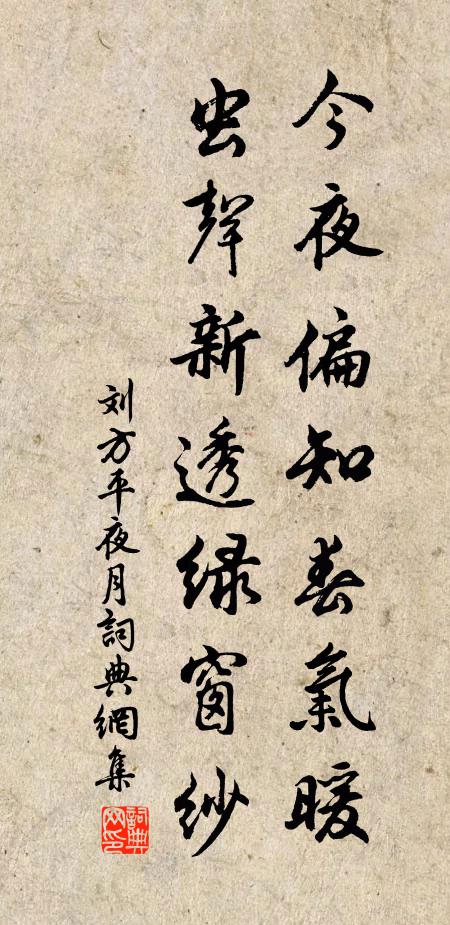 今夜偏知春氣暖
虫聲新透绿窗纱
刘方平夜月詞典網集
詞典网印